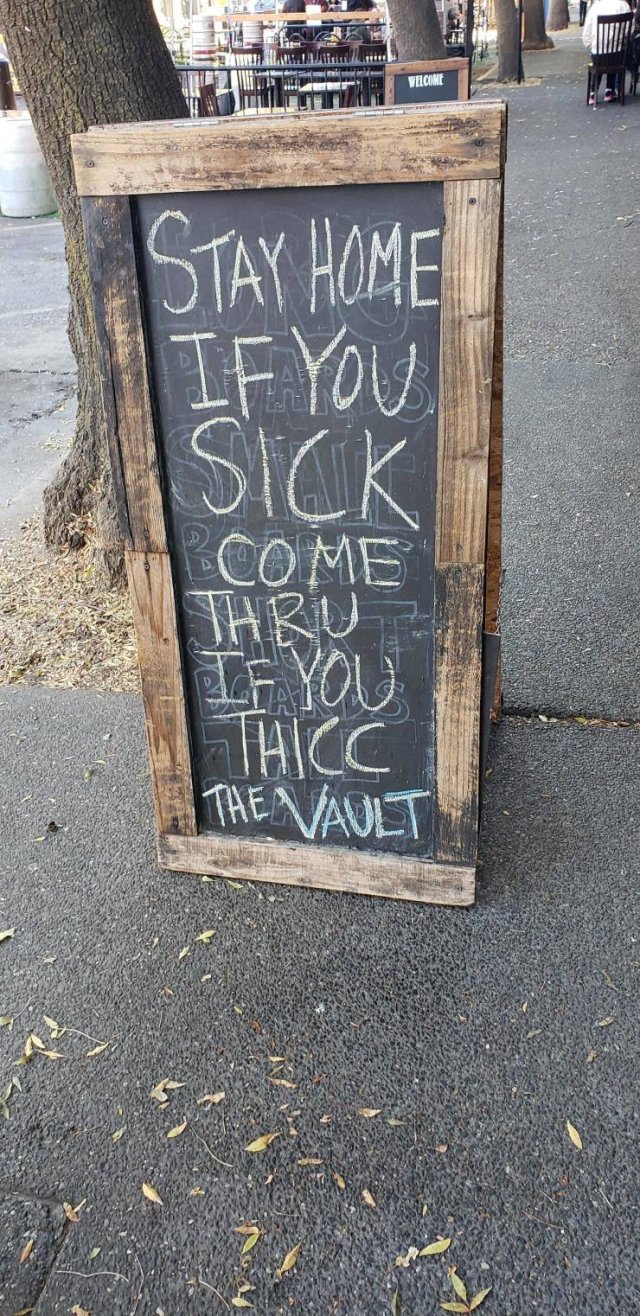 WELCOME
STAY HOME
IF YOU
SICK
COME
THRU
IF YOU
THICC
THE VAULT